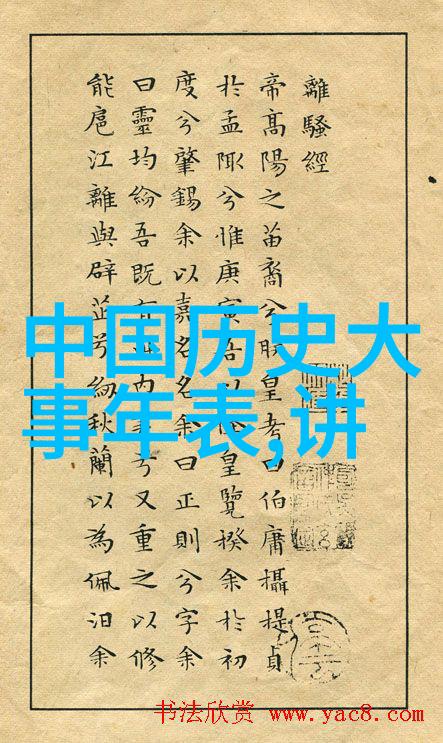 離騷經
帝高陽之苗裔兮朕皇考曰伯庸攝提貞
於孟陬兮惟庚寅吾以降皇覽揆余於初
度兮肇錫余以嘉名名余曰正則兮字余
曰靈均紛吾既有此内美兮又重之以修
能扈江離與辟芷兮紉秋蘭以為佩汨余
中国历史大
事年表,讲
书法欣赏 www.yac8.com